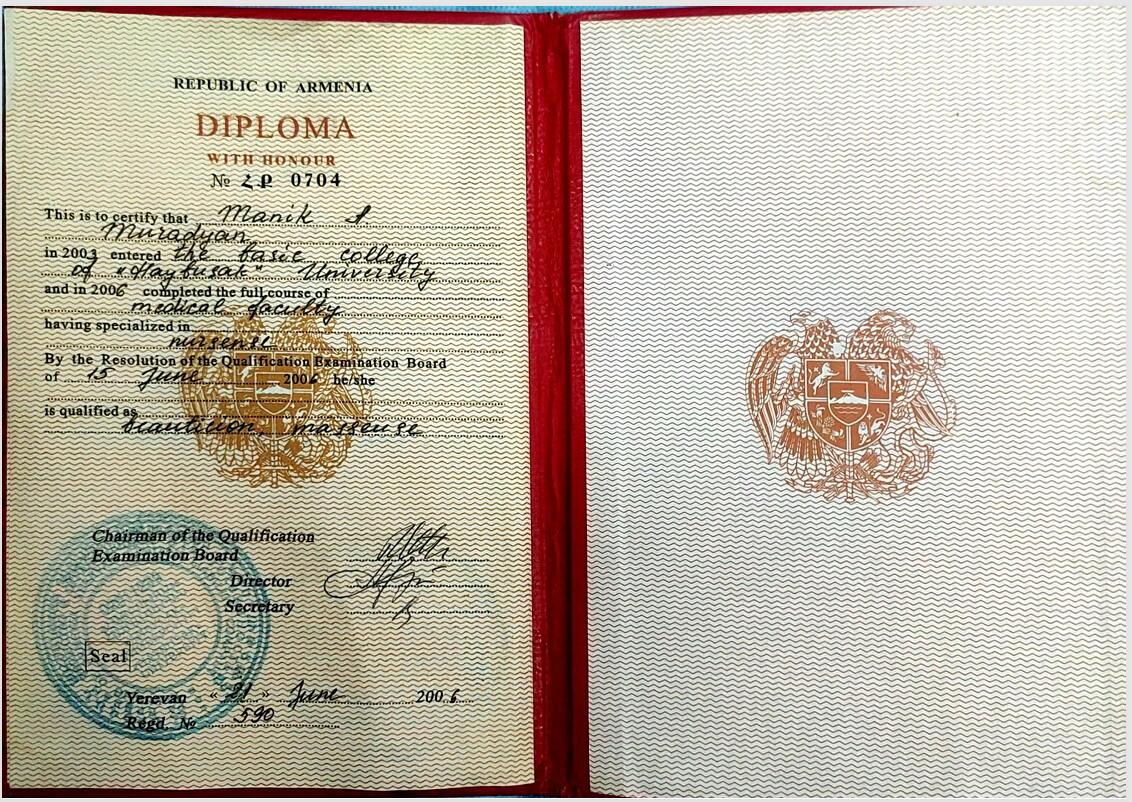 REPUBLIC OF ARMENIA
DIPLOMA
WITH HONOUR
№ ՀՔ 0704
This is to certify that Manik
Muradyan
in 2003 entered the basic college
of "Haybusak" University
and in 2006 completed the full course of
medical faculty
having specialized in
nursense
By the Resolution of the Qualification Examination Board
of 15 June 2006 he/she
is qualified as
beautition, masseuse
Chairman of the Qualification
Examination Board
Director
Secretary
Seal
Yerevan « 21 » June 2006
Regd. № 590